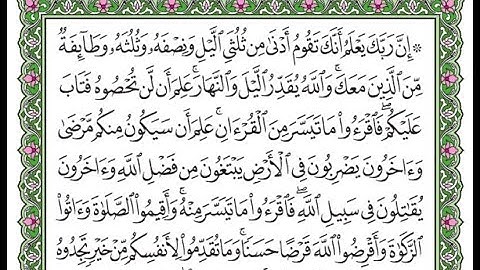 ۞ إِنَّ رَبَّكَ يَعْلَمُ أَنَّكَ تَقُومُ أَدْنَىٰ مِن ثُلُثَيِ ٱلَّيْلِ وَنِصْفَهُۥ وَثُلُثَهُۥ وَطَآئِفَةٌ
مِّنَ ٱلَّذِينَ مَعَكَۚ وَٱللَّهُ يُقَدِّرُ ٱلَّيْلَ وَٱلنَّهَارَۚ عَلِمَ أَن لَّن تُحْصُوهُ فَتَابَ
عَلَيْكُمْۖ فَٱقْرَءُوا۟ مَا تَيَسَّرَ مِنَ ٱلْقُرْءَانِۚ عَلِمَ أَن سَيَكُونُ مِنكُم مَّرْضَىٰ
وَءَاخَرُونَ يَضْرِبُونَ فِى ٱلْأَرْضِ يَبْتَغُونَ مِن فَضْلِ ٱللَّهِ وَءَاخَرُونَ
يُقَٰتِلُونَ فِى سَبِيلِ ٱللَّهِۖ فَٱقْرَءُوا۟ مَا تَيَسَّرَ مِنْهُۚ وَأَقِيمُوا۟ ٱلصَّلَوٰةَ وَءَاتُوا۟
ٱلزَّكَوٰةَ وَأَقْرِضُوا۟ ٱللَّهَ قَرْضًا حَسَنًاۚ وَمَا تُقَدِّمُوا۟ لِأَنفُسِكُم مِّنْ خَيْرٍ تَجِدُوهُ